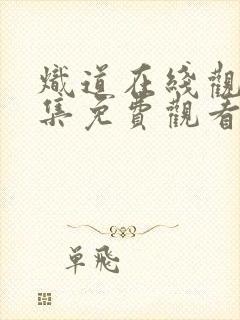 熾道在綫觀
集免費觀看
單飛